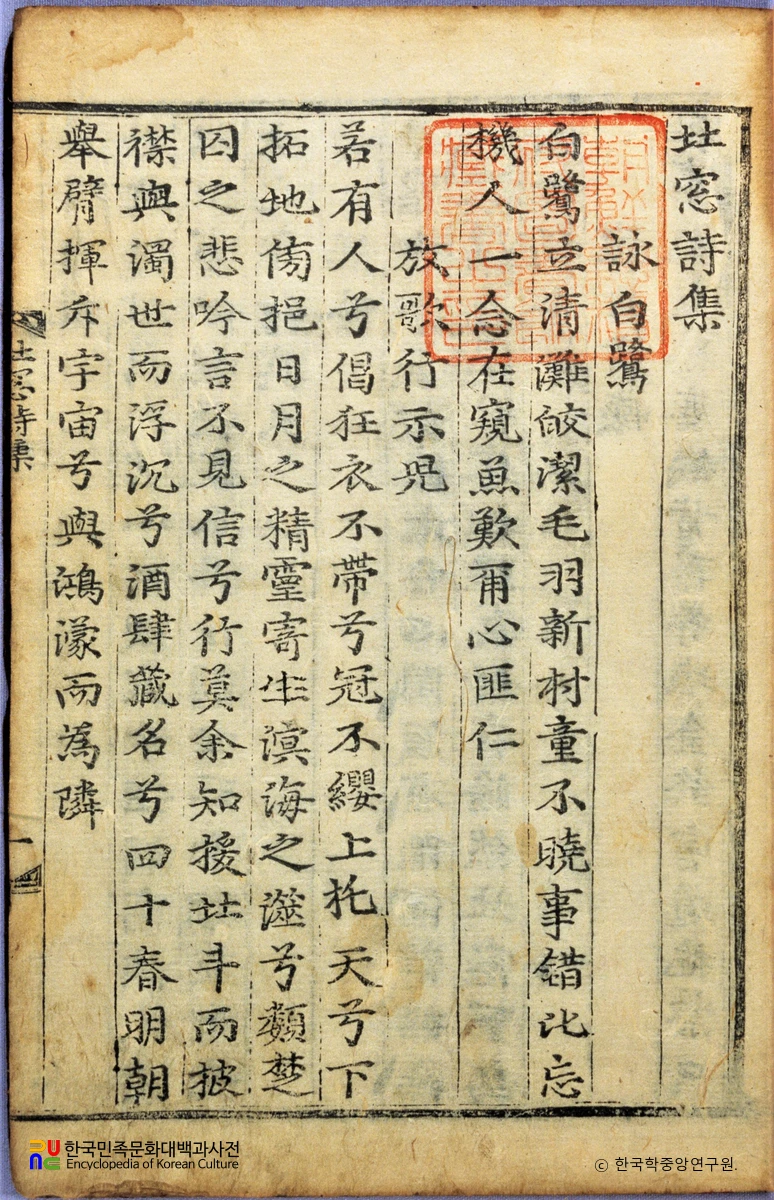 北窓詩集
詠白鷺
白鷺立清灘皎潔毛羽新村童不曉事錯比忘
機人一念在窺魚歎爾心匪仁
放歌行示兒
若有人兮倡狂衣不帶兮冠不纓上托天兮下
拓地傍挹日月之精靈寄生溟海之澨兮類楚
囚之悲吟言不見信兮行莫余知援北斗而披
襟與濁世而浮沉兮酒肆藏名兮四十春明朝
舉臂揮斥宇宙兮與鴻濛而為隣
北窓詩集
一
한국민족문화대백과사전
Encyclopedia of Korean Culture
ⓒ 한국학중앙연구원.